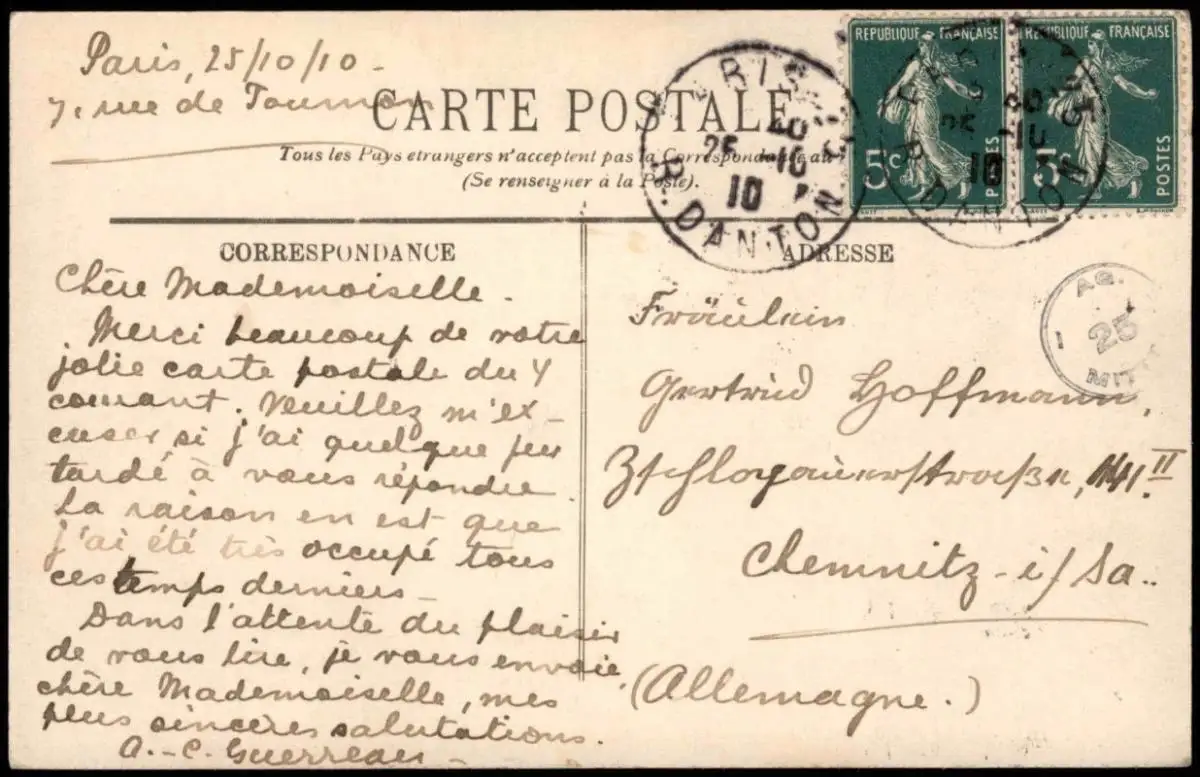 Paris, 25/10/10 -
7, rue de Tournon
CARTE POSTALE
Tous les Pays etrangers n'acceptent pas la Correspondance au
(Se renseigner à la Poste).
REPUBLIQUE FRANÇAISE
5c POSTES
REPUBLIQUE FRANÇAISE
5c POSTES
PARIS
25 - 10
10
R. DANTON
10
R. DANTON
CORRESPONDANCE
Chère Mademoiselle.
Merci beaucoup de votre
jolie carte postale du 4
courant. Veuillez m'ex-
cuser si j'ai quelque peu
tardé à vous répondre.
La raison en est que
j'ai été très occupé tous
ces temps derniers -
Dans l'attente du plaisir
de vous lire, je vous envoie,
chère Mademoiselle, mes
plus sincères salutations.
A.-C. Guerreau -
ADRESSE
AG.
25
MIT
Fräulein
Gertrud Hoffmann,
Zschopauerstraße, 141 II
Chemnitz - i/Sa..
(Allemagne.)